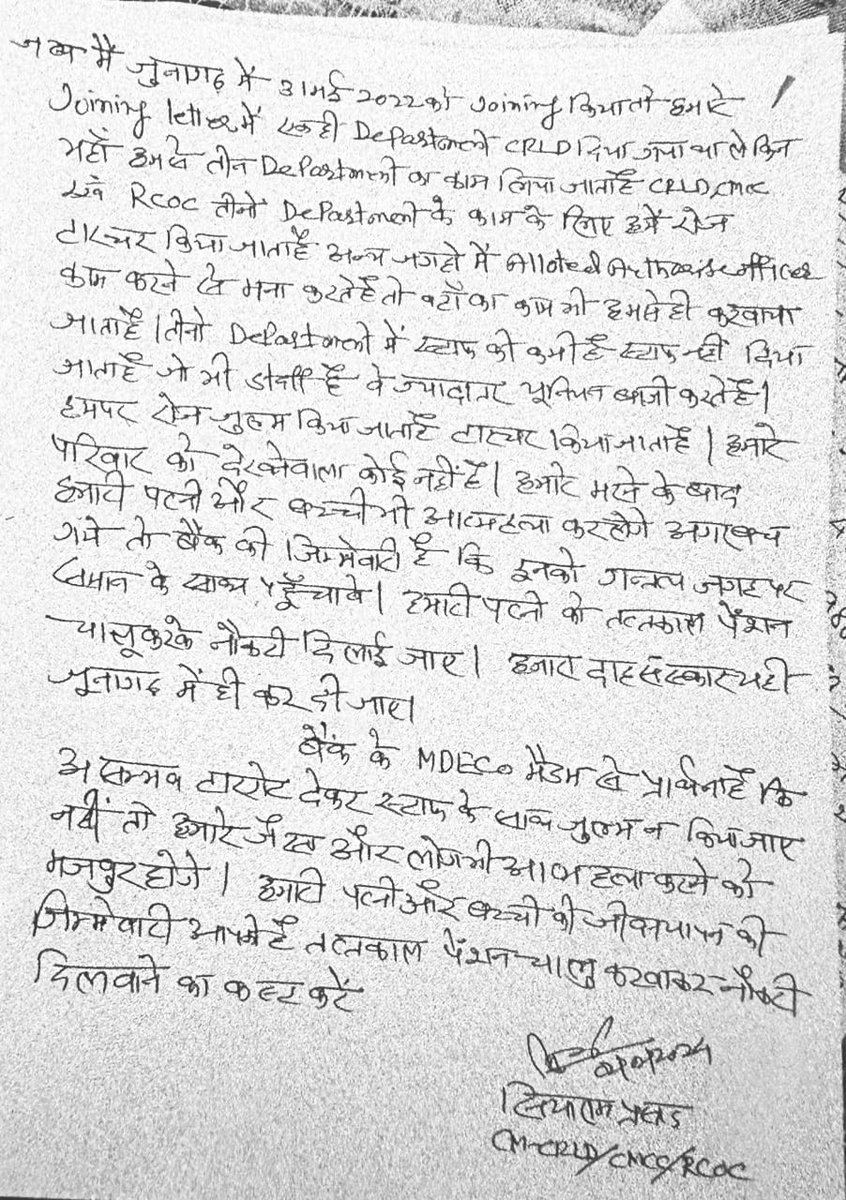 जब मैं जुनागढ़ में 31 मई 2022 को Joining किया तो हमारे
Joining letter में एक ही Department CRLD दिया गया था लेकिन
यहाँ हमसे तीन Department का काम लिया जाता है CRLD, CMCC
एवं RCOC तीनों Department के काम के लिए हमें रोज
टार्स्चर किया जाता है अन्य जगहों में Alloted Authorise officer
काम करने से मना करते हैं तो वहाँ का काम भी हमसे ही करवाया
जाता है। तीनों Department में स्टाफ की कमी है स्टाफ नहीं दिया
जाता है जो भी staff है वे ज्यादातर यूनियन बाजी करते हैं।
हमपर रोज जुल्म किया जाता है टार्स्चर किया जाता है। हमारे
परिवार को देखनेवाला कोई नहीं है। हमारे मरने के बाद
हमारी पत्नी और बच्ची भी आत्महत्या कर लेंगे अगर बच
गये तो बैंक की जिम्मेवारी है कि इनको गन्तव्य जगह पर
समान के साथ पहुँचावे। हमारी पत्नी को तत्तकाल पेंशन
चालू करके नौकरी दिलाई जाए। हमारा दाह संस्कार यही
जूनागढ़ में ही कर दी जाए।
बैंक के MDECO मैडम से प्रार्थना है कि
असम्भव टारगेट देकर स्टाफ के साथ जुल्म न किया जाए
नहीं तो हमारे जैसा और लोग भी आत्महत्या करने को
मजबुर होंगे। हमारी पत्नी और बच्ची की जीवनयापन की
जिम्मेवारी आपकी है तत्तकाल पेंशन चालु करवाकर नौकरी
दिलवाने का कष्ट करें
सियाराम प्रसाद
CM-CRLD/CMCC/RCOC